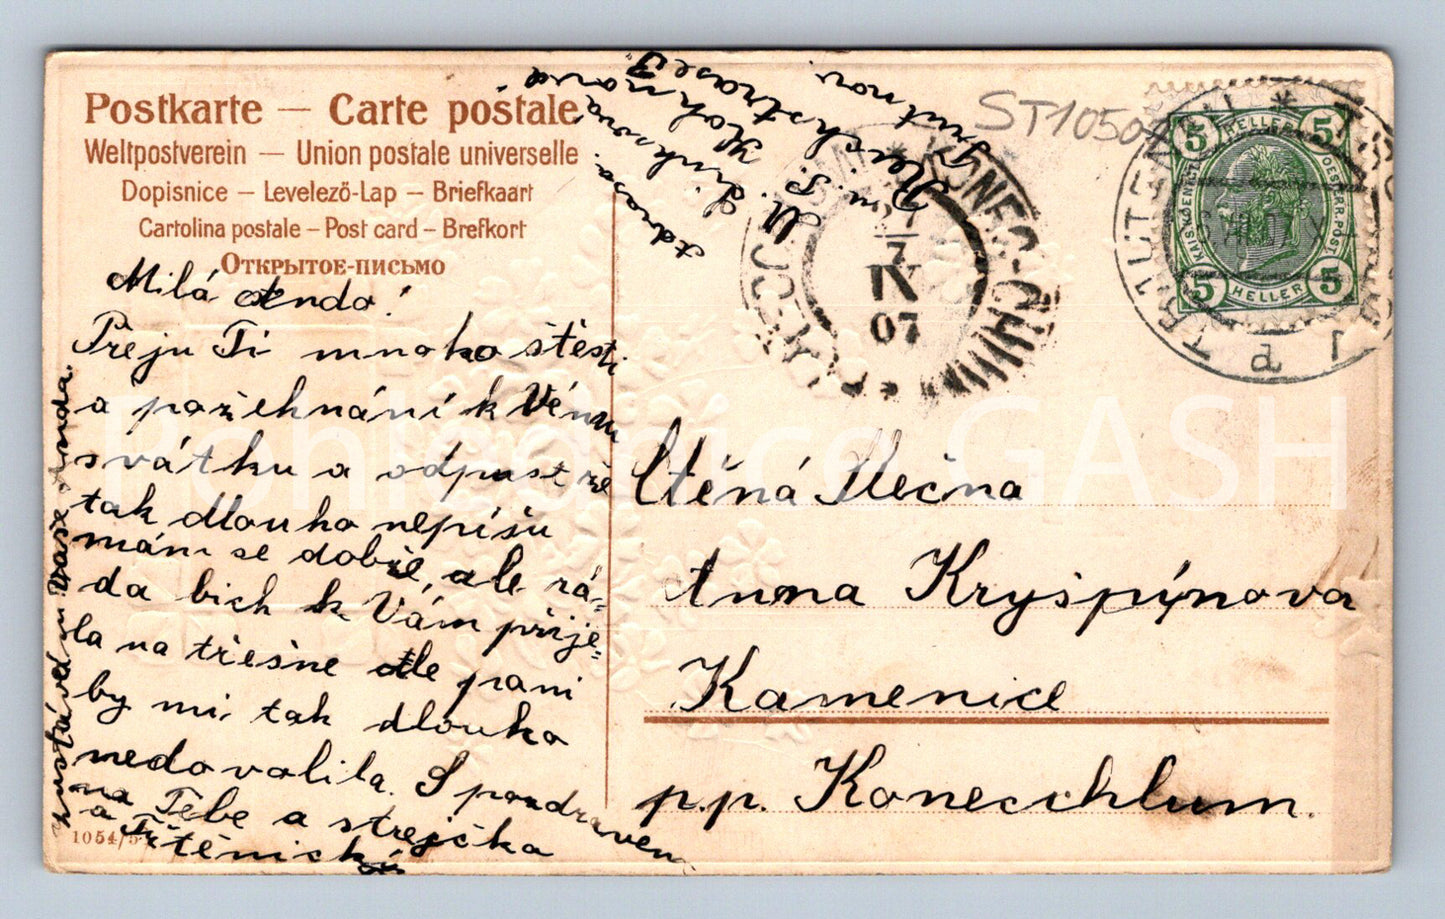 Postkarte — Carte postale
Weltpostverein — Union postale universelle
Dopisnice — Levelező-Lap — Briefkaart
Cartolina postale – Post card – Brefkort
Открытое-письмо
Milá Ando!
Přeju Ti mnoho štěsti
a požehnání k Vémm
svátku a odpust že
tak dlouho nepíšu
mám se dobře, ale rá-
da bich k Vám přije-
la na třešne ale pani
by mi tak dlouho
nedovolila. S pozdraven
na Tebe a strejčka
a Třtěnický
zustávám Vaše Anda.
1054/5
adresa.
M. Šinksová
u. P. Hohmova
Reichstrase 3
Trutnov.
ST1050
5 HELLER 5
KAIS. KÖN. OESTERR. POST
5 HELLER 5
TRAUTENAU * TRUTNOV
d
KONEC-CHLUM
7
IX
07
Ctěná Slečna
Anna Kryšpýnova
Kamenice
p.p. Konecchlum.
Pohlednice GASH